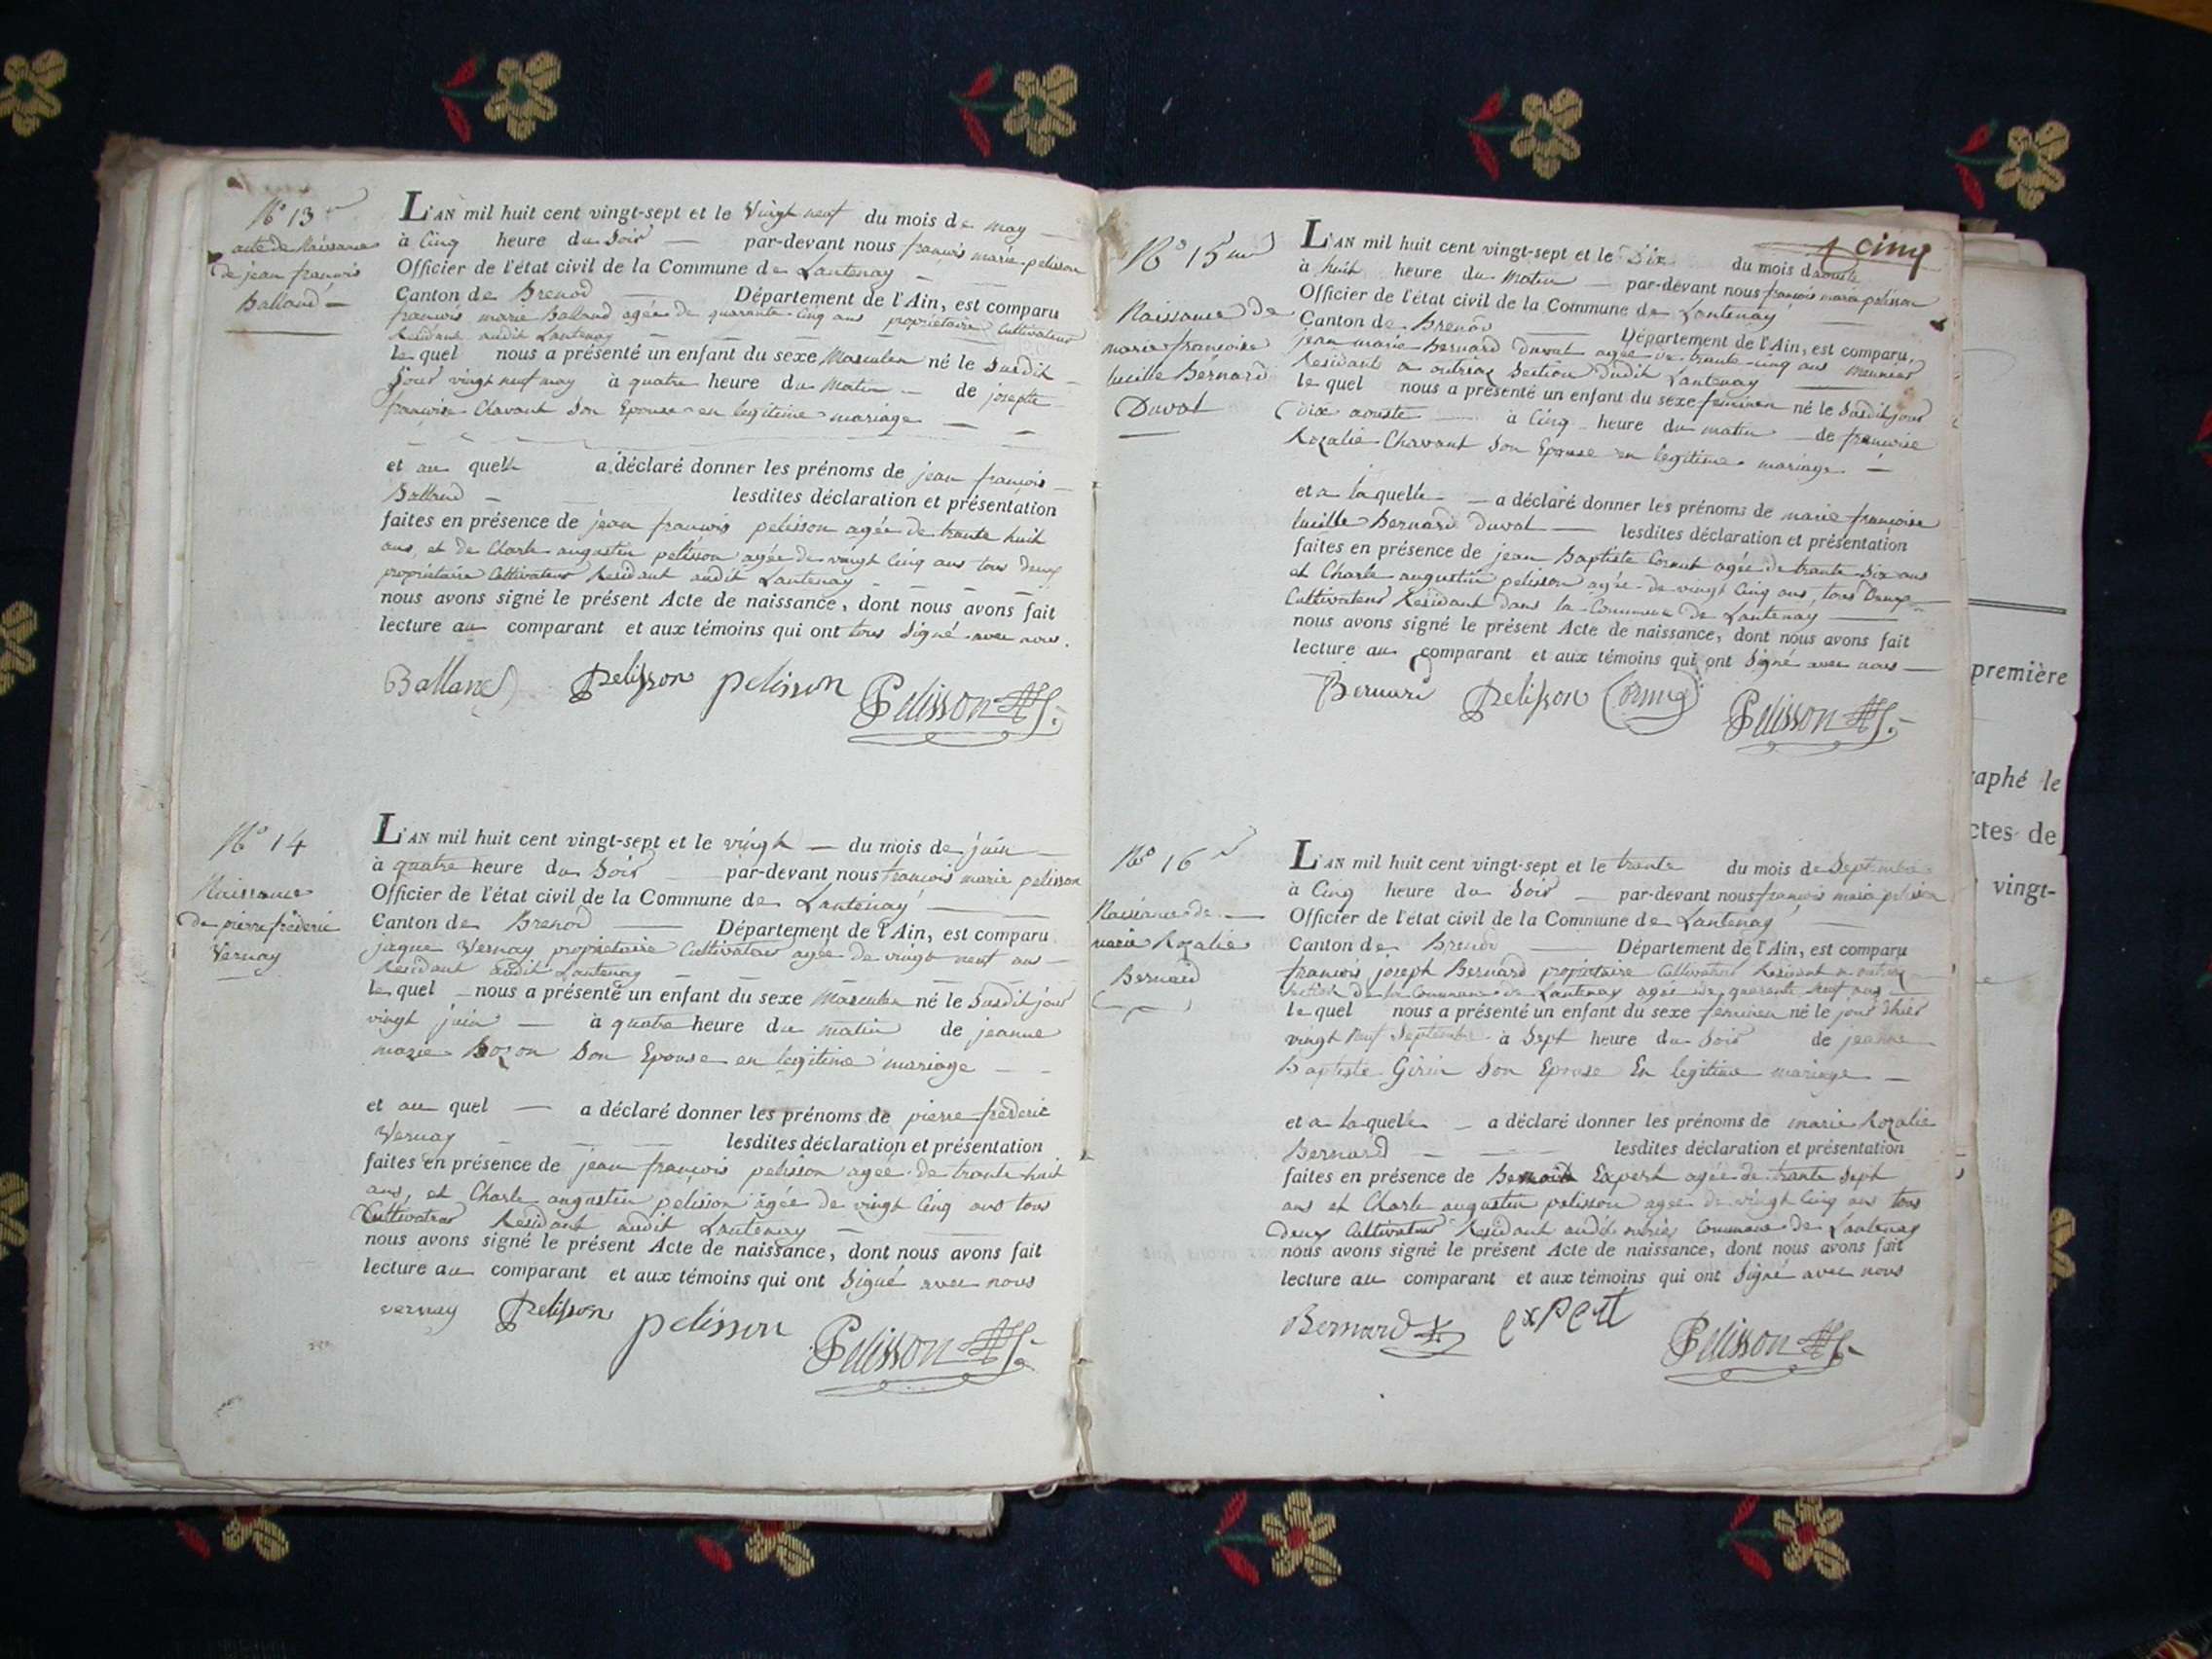 N° 13
acte de Naissance
de jean françois
Balland
L'AN mil huit cent vingt-sept et le Vingt neuf du mois de may
à Cinq heure du Soir par-devant nous françois marie pelisson
Officier de l'état civil de la Commune de Lantenay
Canton de Brenod Département de l'Ain, est comparu
françois marie Balland agée de quarante-cinq ans propriétaire Cultivateur
Residant audit Lantenay
le quel nous a présenté un enfant du sexe Masculin né le Susdit
Jour vingt neuf may à quatre heure du Matin de josephte
françoise Chavant Son Epouse en legitime mariage
et au quel a déclaré donner les prénoms de jean françois
Balland lesdites déclaration et présentation
faites en présence de jean françois pelisson agée de trante huit
ans, et de Charle augustin pelisson agée de vingt Cinq ans tous deux
propriétaire Cultivateur Residant audit Lantenay
nous avons signé le présent Acte de naissance, dont nous avons fait
lecture au comparant et aux témoins qui ont tous Signé avec nous.
Balland Pelisson pelisson Pelisson
N° 14
Naissance
de pierre frédéric
Vernay
L'AN mil huit cent vingt-sept et le vingt du mois de juin
à quatre heure du Soir par-devant nous francois marie pelisson
Officier de l'état civil de la Commune de Lantenay
Canton de Brenod Département de l'Ain, est comparu
jaque Vernay propriétaire Cultivateur agée de vingt neuf ans
Residant audit Lantenay
le quel nous a présenté un enfant du sexe Masculin né le Susdit jour
vingt juin à quatre heure du matin de jeanne
marie Bozon Son Epouse en legitime mariage
et au quel a déclaré donner les prénoms de pierre frederic
Vernay lesdites déclaration et présentation
faites en présence de jean françois pelisson agée de trante huit
ans, et Charle augustin pelisson agée de vingt Cinq ans tous
Cultivateur Residant audit Lantenay
nous avons signé le présent Acte de naissance, dont nous avons fait
lecture au comparant et aux témoins qui ont Signé avec nous
vernay Pelisson pelisson Pelisson
cinq
N° 15
Naissance de
marie françoise
lucille Bernard
Duval
L'AN mil huit cent vingt-sept et le Dix du mois d'aouste
à huit heure du Matin par-devant nous françois marie pelisson
Officier de l'état civil de la Commune de Lantenay
Canton de Brenod Département de l'Ain, est comparu
jean marie Bernard Duval agée de trante-cinq ans meunier
Residant a outriaz Section dudit Lantenay
le quel nous a présenté un enfant du sexe feminin né le Susdit jour
Dix aouste à Cinq heure du matin de francoise
Rozalie Chavant Son Epouse en legitime mariage
et a laquelle a déclaré donner les prénoms de marie françoise
lucille Bernard Duval lesdites déclaration et présentation
faites en présence de jean Baptiste Cornut agée de trante Six ans
et Charle augustin pelisson agée de vingt Cinq ans, tous Deux
Cultivateur Residant dans la Commune de Lantenay
nous avons signé le présent Acte de naissance, dont nous avons fait
lecture au comparant et aux témoins qui ont Signé avec nous
Bernard Pelisson Pelisson
N° 16
Naissance de
marie Rozalie
Bernard
L'AN mil huit cent vingt-sept et le trente du mois de Septembre
à Cinq heure du Soir par-devant nous françois marie pelisson
Officier de l'état civil de la Commune de Lantenay
Canton de Brenod Département de l'Ain, est comparu
francois joseph Bernard propriétaire Cultivateur Residant a outriaz
Section de la Commune de Lantenay agée de quarante neuf ans
le quel nous a présenté un enfant du sexe feminin né le jour d'hier
vingt neuf Septembre à Sept heure du Soir de jeanne
Baptiste Girin Son Epouse En legitime mariage
et a laquelle a déclaré donner les prénoms de marie Rozalie
Bernard lesdites déclaration et présentation
faites en présence de Benoit Expert agée de trante Sept
ans et Charle augustin pelisson agée de vingt Cinq ans tous
deux Cultivateur Residant audit Commune de Lantenay
nous avons signé le présent Acte de naissance, dont nous avons fait
lecture au comparant et aux témoins qui ont Signé avec nous
Bernard expert Pelisson
première
raphé le
ctes de
vingt-